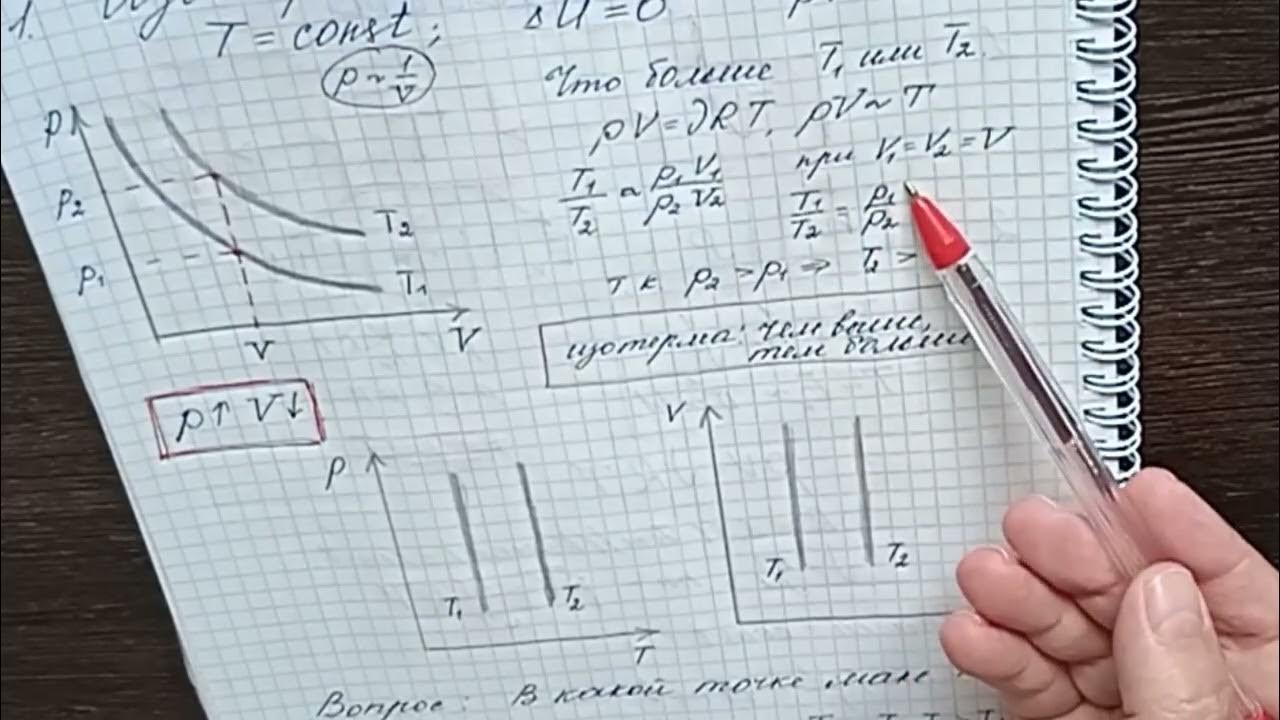 1.
T = const; ΔU = 0
p ~ 1/V
Что больше T₁ или T₂.
pV = νRT, pV ~ T
T₁/T₂ ~ p₁V₁/p₂V₂
при V₁ = V₂ = V
T₁/T₂ = p₁/p₂
т к p₂ > p₁ ⇒ T₂ >
изотерма: чем выше,
тем больше
p
p₂
p₁
T₂
T₁
V
V
p↑ V↓
p
T₁
T₂
T
V
T₁
T₂
Вопрос: В какой точке